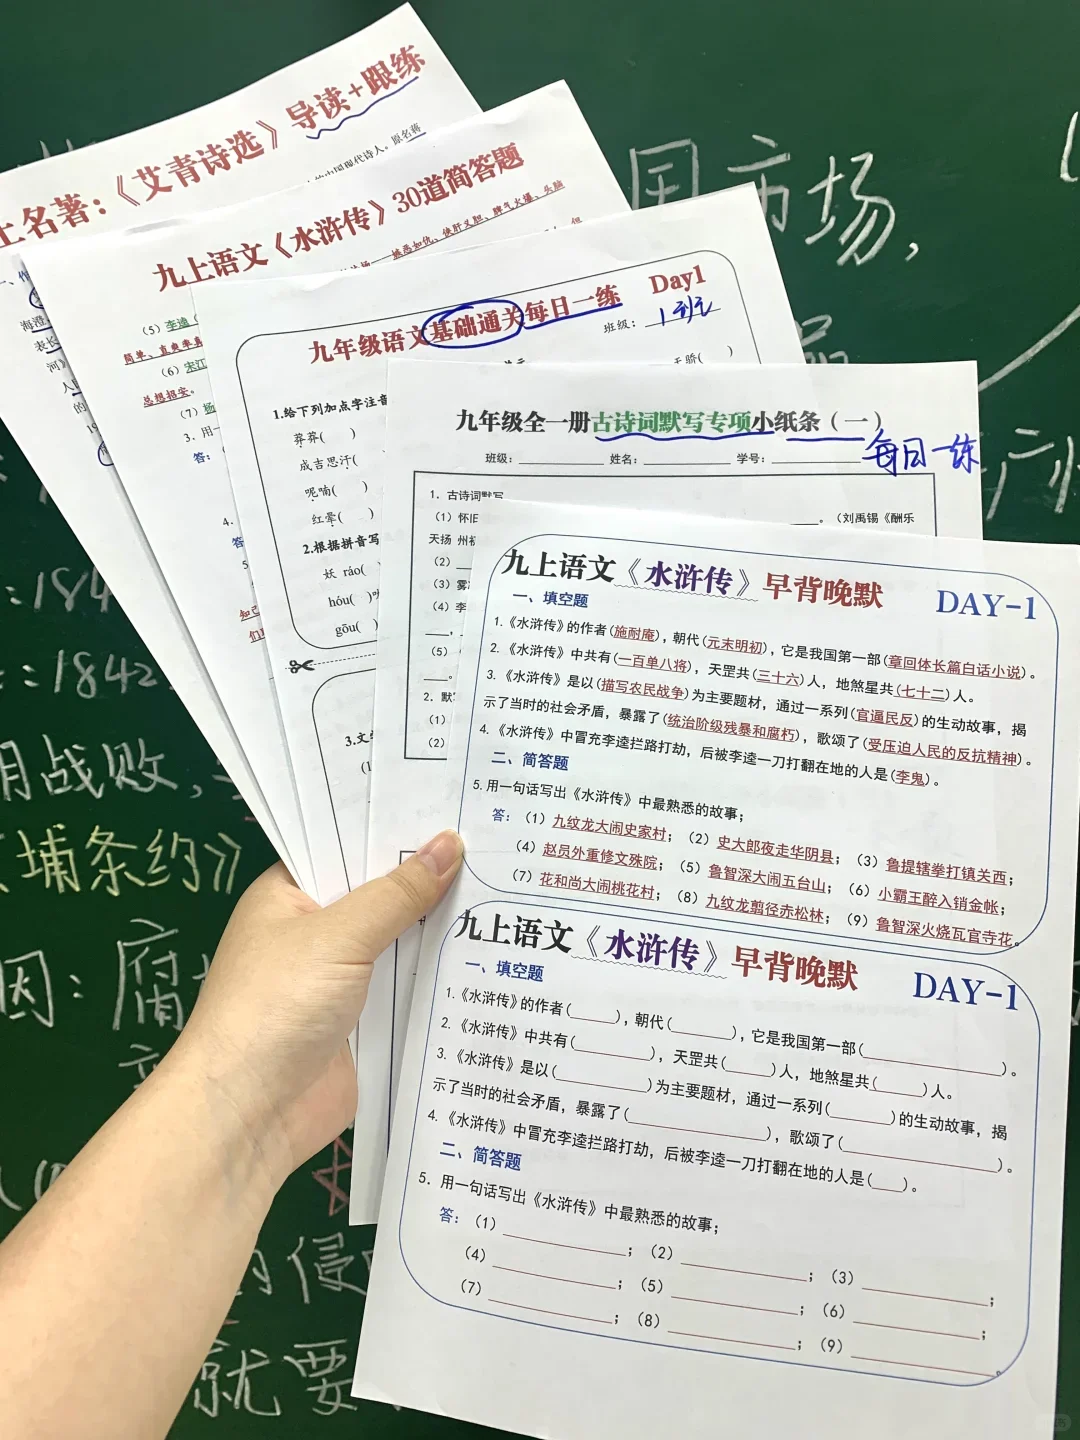 上名著：《艾青诗选》导读+跟练
中国现代诗人。原名蒋
九上语文《水浒传》30道简答题
嫉恶如仇、侠肝义胆、脾气火爆、头脑
（5）李逵（
简单、直爽率真
（6）宋江
总想招安。
（7）杨
3、用一
答：
4.
知己
们
海澄
表长
河》
人
的
九年级语文基础通关每日一练 Day1
班级：
1.给下列加点字注音
莽莽( )
天骄( )
成吉思汗(
呢喃( )
红晕( )
2.根据拼音写
妖 ráo(
hóu( )
gōu( )
3.文
九年级全一册古诗词默写专项小纸条（一）
每日一练
班级：
姓名：
学号：
1．古诗词默写
（1）怀旧
。（刘禹锡《酬乐
天扬 州初
（2）
（3）雾
（4）李
（5）
2．默
（1）
（2）
九上语文《水浒传》早背晚默 DAY-1
一、填空题
1.《水浒传》的作者(施耐庵)，朝代(元末明初)，它是我国第一部(章回体长篇白话小说)。
2.《水浒传》中共有(一百单八将)，天罡共(三十六)人，地煞星共(七十二)人。
3.《水浒传》是以(描写农民战争)为主要题材，通过一系列(官逼民反)的生动故事，揭
示了当时的社会矛盾，暴露了(统治阶级残暴和腐朽)，歌颂了(受压迫人民的反抗精神)。
4.《水浒传》中冒充李逵拦路打劫，后被李逵一刀打翻在地的人是(李鬼)。
二、简答题
5.用一句话写出《水浒传》中最熟悉的故事；
答：（1）九纹龙大闹史家村；（2）史大郎夜走华阴县；（3）鲁提辖拳打镇关西；
（4）赵员外重修文殊院；（5）鲁智深大闹五台山；（6）小霸王醉入销金帐；
（7）花和尚大闹桃花村；（8）九纹龙剪径赤松林；（9）鲁智深火烧瓦官寺花。
九上语文《水浒传》早背晚默 DAY-1
一、填空题
1.《水浒传》的作者(____)，朝代(____)，它是我国第一部(____)。
2.《水浒传》中共有(____)，天罡共(____)人，地煞星共(____)人。
3.《水浒传》是以(____)为主要题材，通过一系列(____)的生动故事，揭
示了当时的社会矛盾，暴露了(____)，歌颂了(____)。
4.《水浒传》中冒充李逵拦路打劫，后被李逵一刀打翻在地的人是(____)。
二、简答题
5．用一句话写出《水浒传》中最熟悉的故事；
答：（1）____；（2）____；（3）____；
（4）____；（5）____；（6）____；
（7）____；（8）____；（9）____。
国市场，
品
：184
：1842
月战败，
埔条约》
因：腐
的侵
就要